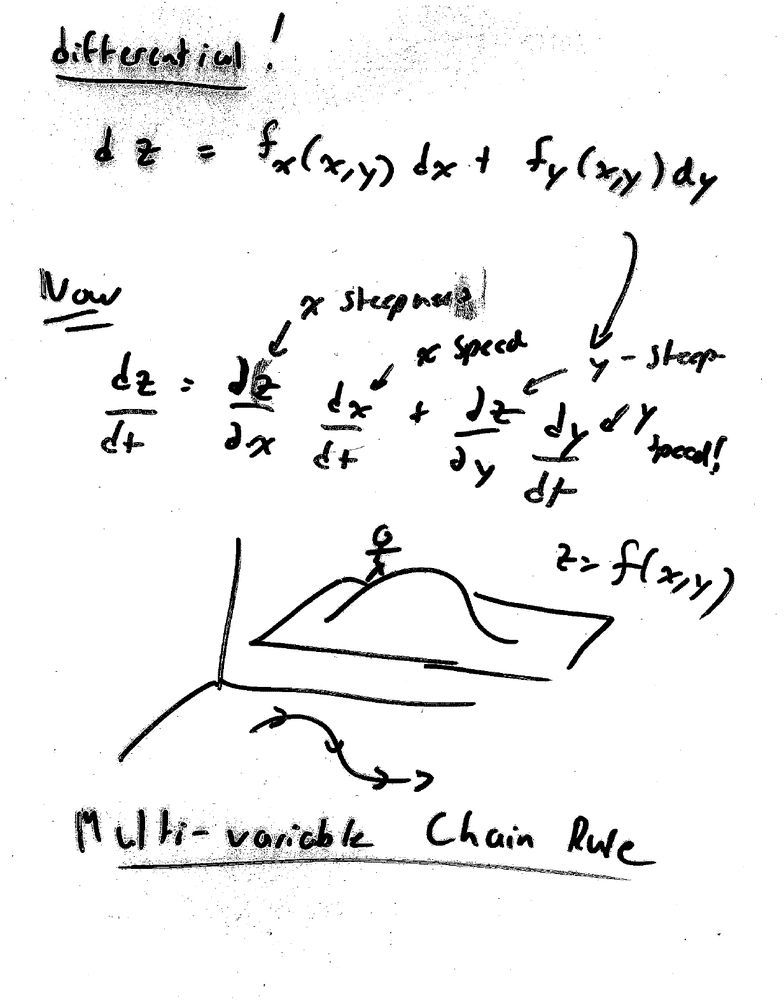 differential !
dz = fx(x,y) dx + fy(x,y) dy
Now
x steepness
x speed
y - steep
dz/dt = ∂z/∂x dx/dt + ∂z/∂y dy/dt
y speed!
z = f(x,y)
Multi-variable Chain Rule